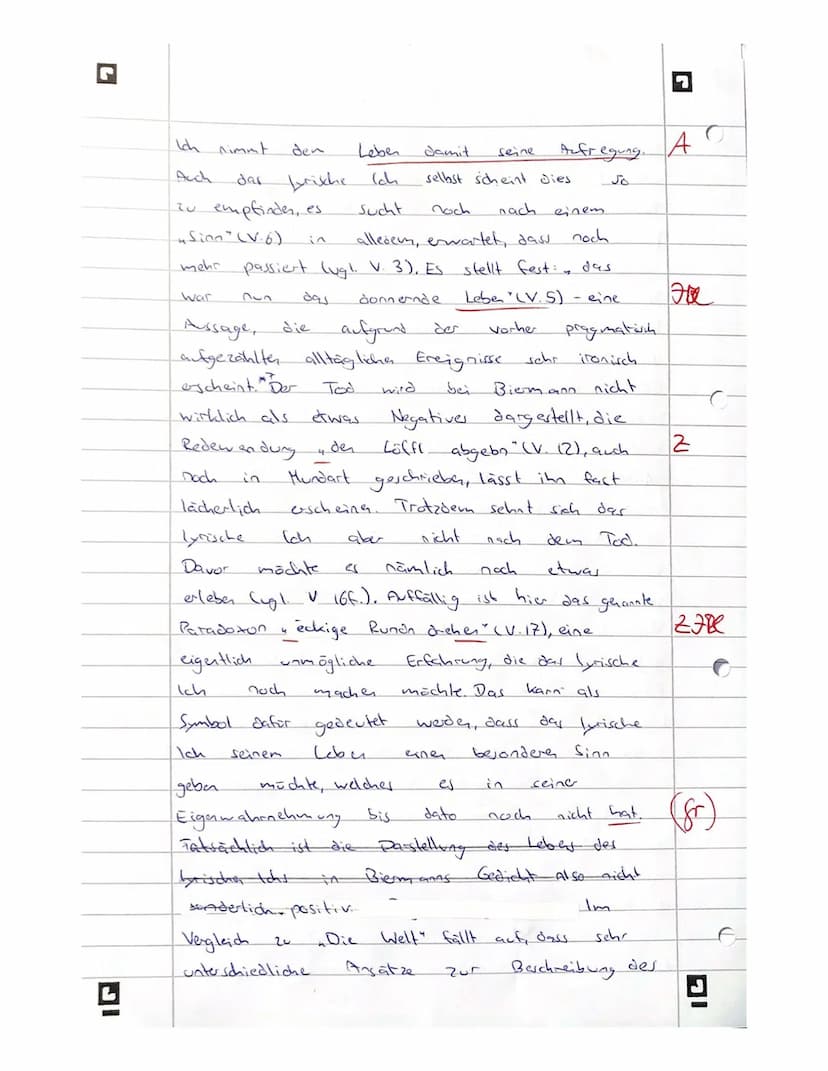 Ich nimmt den Leben damit seine Aufregung. A
Auch das lyrische Ich selbst scheint dies so
zu empfinden, es sucht noch nach einem
„Sinn" (V. 6) in alledem, erwartet, dass noch
mehr passiert (vgl. V. 3). Es stellt fest: „das
war nun das donnernde Leben" (V. 5) - eine
Aussage, die aufgrund der vorher pragmatisch
aufgezählten alltäglichen Ereignisse sehr ironisch
erscheint. *7 Der Tod wird bei Biermann nicht
wirklich als etwas Negatives dargestellt, die
Redewendung „den Löffl abgebn" (V. 12), auch Z
noch in Mundart geschrieben, lässt ihn fast
lächerlich erscheinen. Trotzdem sehnt sich das
lyrische Ich aber nicht nach dem Tod.
Davor möchte es nämlich noch etwas
erleben (vgl. V 16f.). Auffällig ist hier das genannte
Paradoxon „eckige Rundn drehen" (V. 17), eine
eigentlich unmögliche Erfahrung, die das lyrische
Ich noch machen möchte. Das kann als
Symbol dafür gedeutet werden, dass das lyrische
Ich seinem Leben einen besonderen Sinn
geben möchte, welches es in seiner
Eigenwahrnehmung bis dato noch nicht hat. (Gr)
Tatsächlich ist die Darstellung des Lebens des
lyrischen Ichs in Biermanns Gedicht also nicht
sonderlich positiv. Im
Vergleich zu „Die Welt" fällt auf, dass sehr
unterschiedliche Ansätze zur Beschreibung des